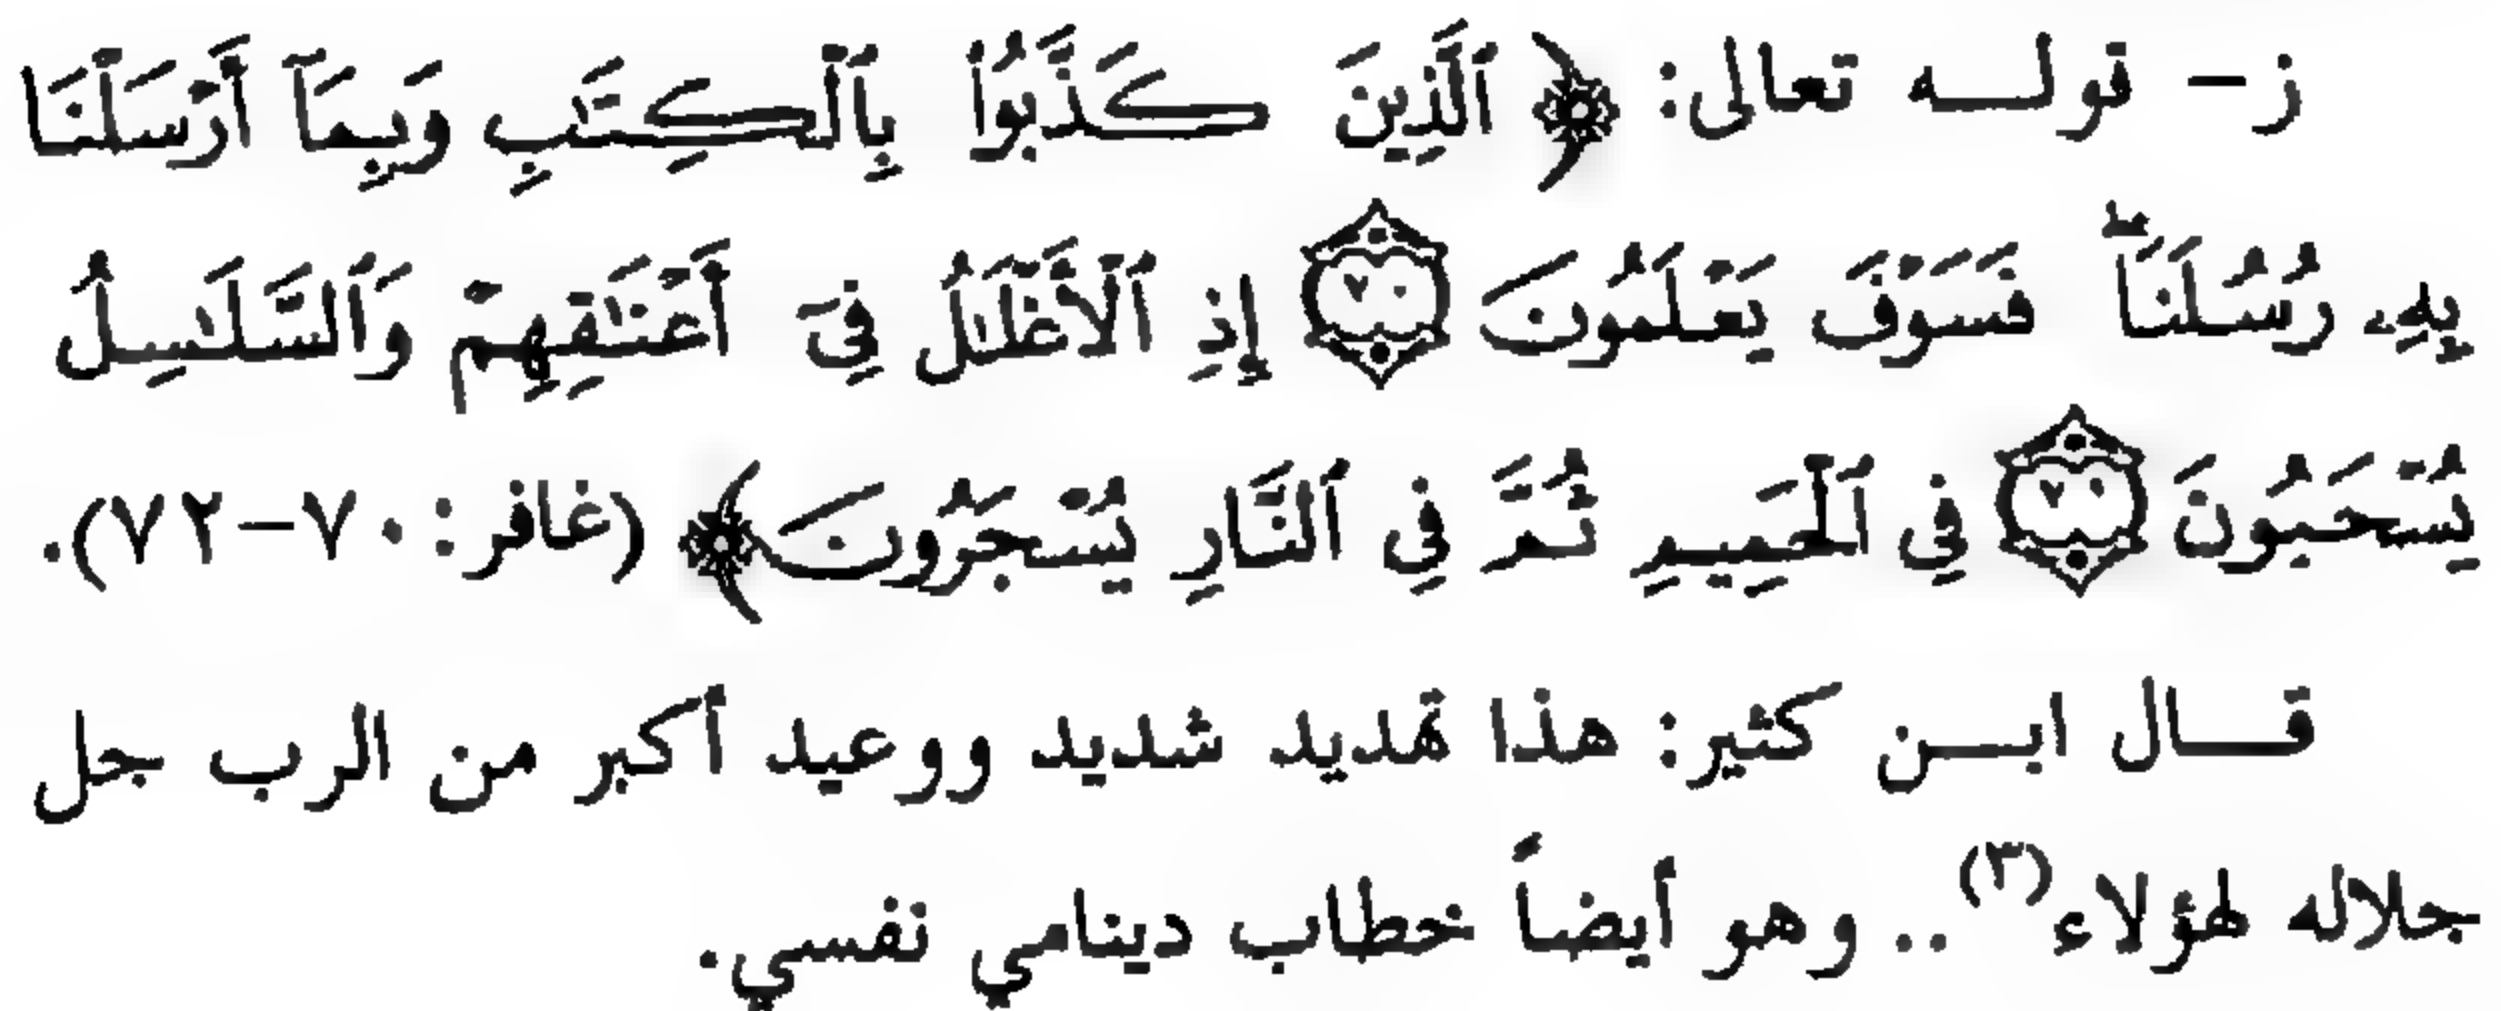 ز– قولـه تعالى: ﴿ ٱلَّذِينَ كَذَّبُوا۟ بِٱلْكِتَٰبِ وَبِمَآ أَرْسَلْنَا
بِهِۦ رُسُلَنَا ۖ فَسَوْفَ يَعْلَمُونَ ٧٠ إِذِ ٱلْأَغْلَٰلُ فِىٓ أَعْنَٰقِهِمْ وَٱلسَّلَٰسِلُ
يُسْحَبُونَ ٧٠ فِى ٱلْحَمِيمِ ثُمَّ فِى ٱلنَّارِ يُسْجَرُونَ ﴾ (غافر: ٧٠–٧٢).
قـال ابـن كثير: هذا تهديد شديد ووعيد أكبر من الرب جل
جلاله لهؤلاء(٣).. وهو أيضاً خطاب دينامي نفسي.